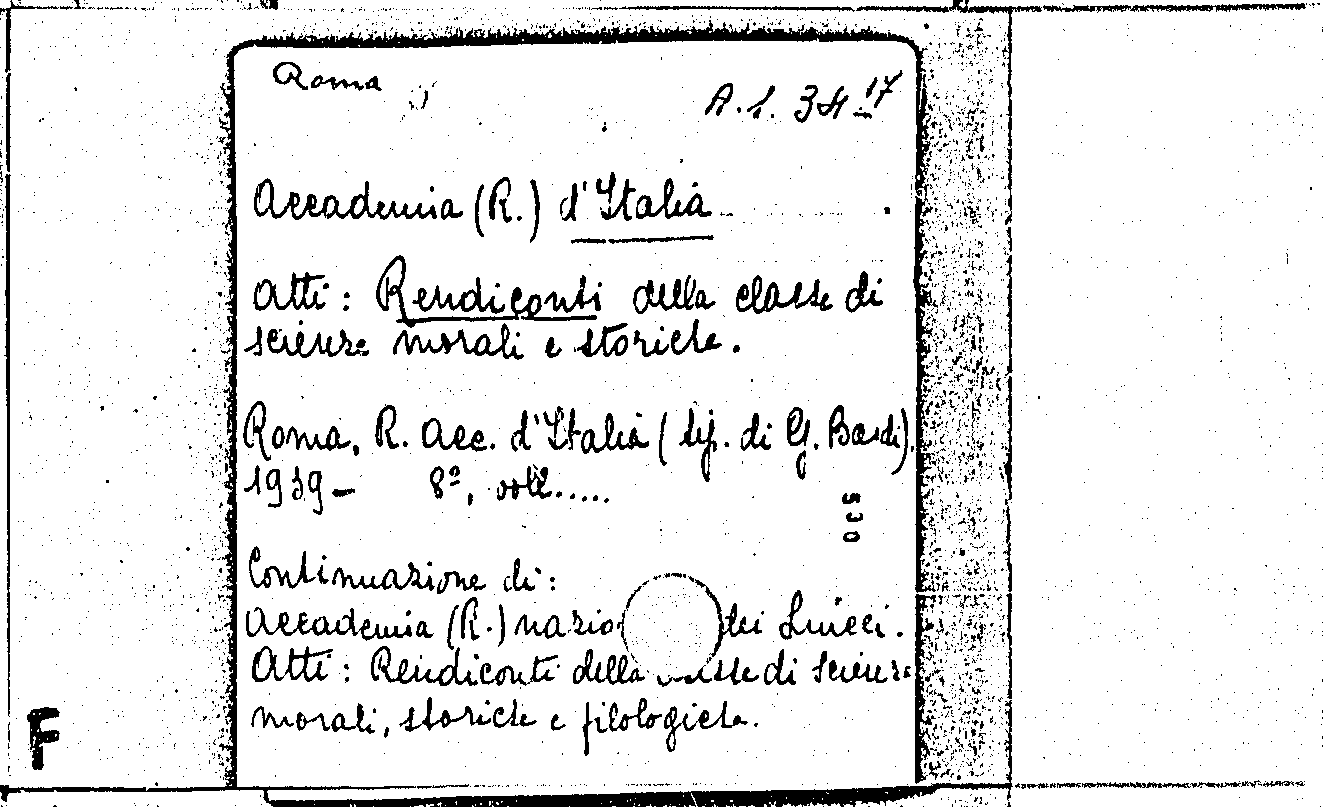 Roma
A.1. 34 17
Accademia (R.) d'Italia
Atti: Rendiconti della classe di
scienze morali e storiche.
Roma, R. Acc. d'Italia (tip. di G. Bardi).
1939– 8º, voll.....
Continuazione di:
Accademia (R.) nazio dei Lincei.
Atti: Rendiconti della classe di scienze
morali, storiche e filologiche.
F